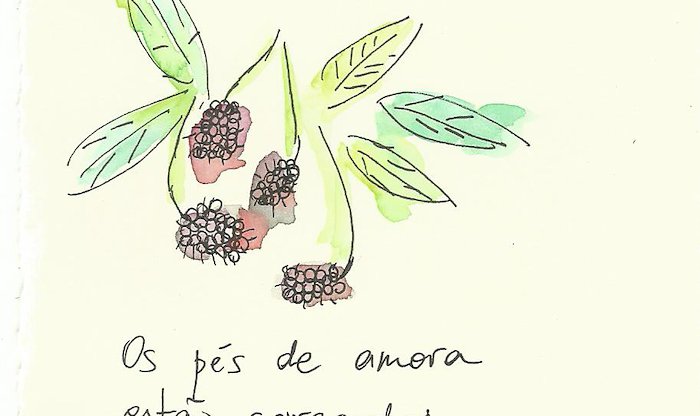 Os pés de amora
estão